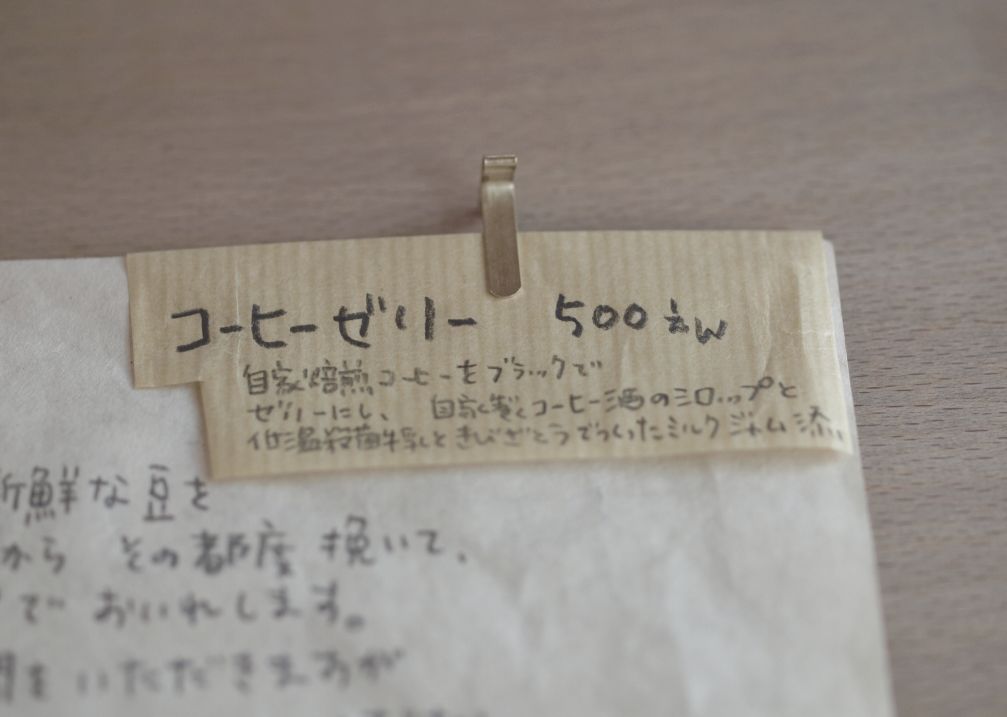 コーヒーゼリー 500えん
自家焙煎コーヒーをブラックで
ゼリーにし、 自家製コーヒー酒のシロップと
低温殺菌牛乳ときびざとうでつくったミルクジャム添え
鮮な豆を
から その都度 挽いて、
で おいれします。
をいただきますが